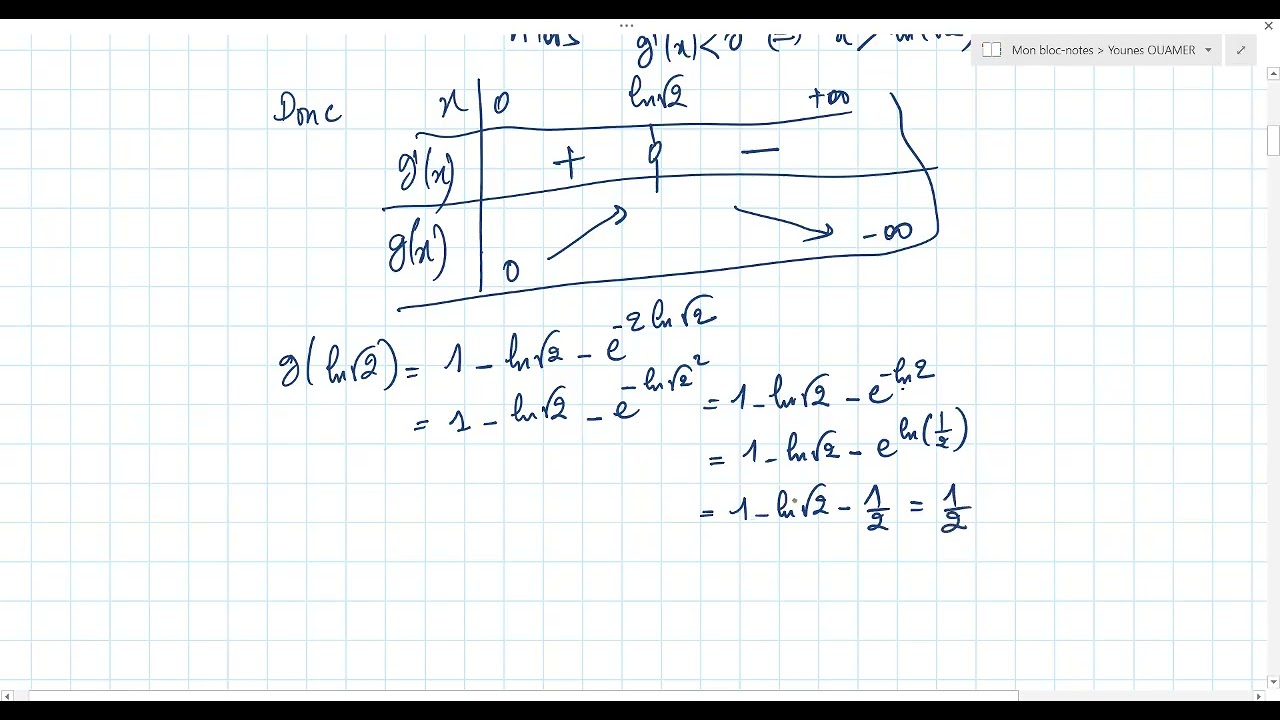 Mon bloc-notes > Younes OUAMER
g'(x)<0 ⇔
Donc x 0 ln√2 +∞
g'(x) + 0 −
g(x) 0 −∞
g(ln√2) = 1 − ln√2 − e^{−2 ln√2}
= 1 − ln√2 − e^{−ln√2²} = 1 − ln√2 − e^{−ln2}
= 1 − ln√2 − e^{ln(1/2)}
= 1 − ln√2 − 1/2 = 1/2